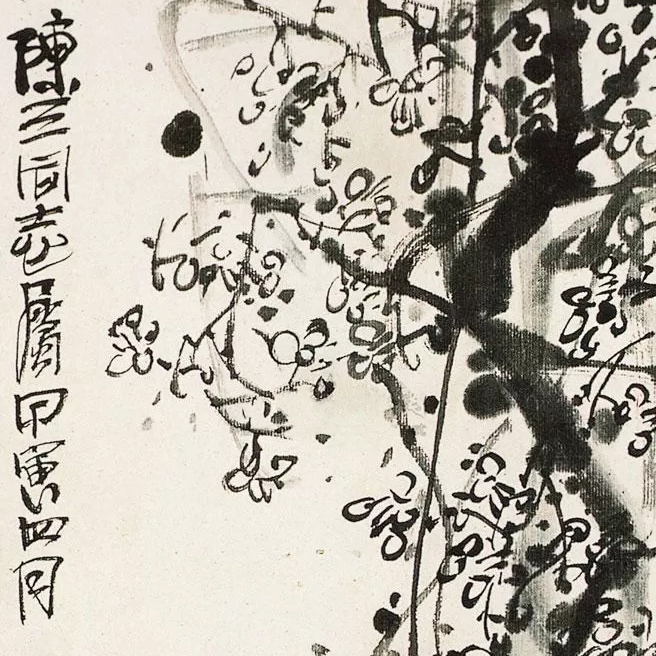 陳三同志屬甲寅四月